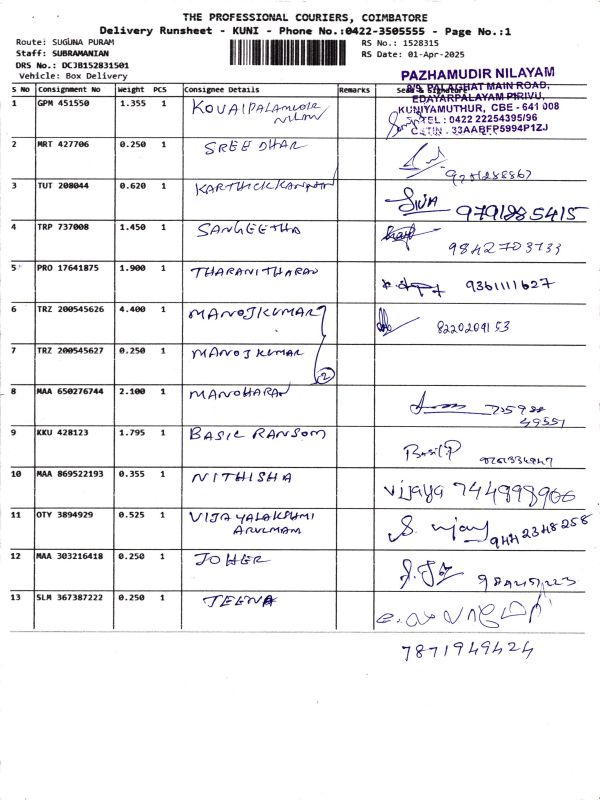 THE PROFESSIONAL COURIERS, COIMBATORE
Delivery Runsheet - KUNI - Phone No.:0422-3505555 - Page No.:1
Route: SUGUNA PURAM
Staff: SUBRAMANIAN
DRS No.: DCJB152831501
Vehicle: Box Delivery
RS No.: 1528315
RS Date: 01-Apr-2025
PAZHAMUDIR NILAYAM
8/9, PALAGHAT MAIN ROAD,
EDAYARPALAYAM PIRIVU,
KUNIYAMUTHUR, CBE - 641 008
TEL : 0422 22254395/96
GSTIN : 33AABFP5994P1ZJ
S No Consignment No Weight PCS Consignee Details Remarks Seal & Signature
1 GPM 451550 1.355 1 KOVAIPALAMUDIR
NILAM
2 MRT 427706 0.250 1 SREEDHAR
3 TUT 208044 0.620 1 KARTHICKKANNAN SIVA 9791285415
4 TRP 737008 1.450 1 SANGEETHA 9842703733
5 PRO 17641875 1.900 1 THARANITHARAN 9361111627
6 TRZ 200545626 4.400 1 MANOJKUMAR 8220209153
7 TRZ 200545627 0.250 1 MANOJKUMAR
2
8 MAA 650276744 2.100 1 MANOHARAN
9 KKU 428123 1.795 1 BASIL RANSOM Basil.P
10 MAA 869522193 0.355 1 NITHISHA vijaya 744898906
11 OTY 3894929 0.525 1 VIJAYALAKSHMI
ARULMANI
9442348258
12 MAA 303216418 0.250 1 JOHER
13 SLM 367387222 0.250 1 TEENA
7871949424